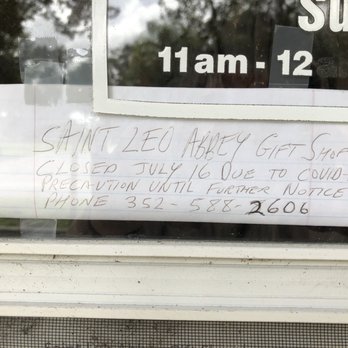 Su
11am - 12
SAINT LEO ABBEY GIFT SHOP
CLOSED JULY 16 DUE TO COVID-
PRECAUTION UNTIL FURTHER NOTICE
PHONE 352-588-2606